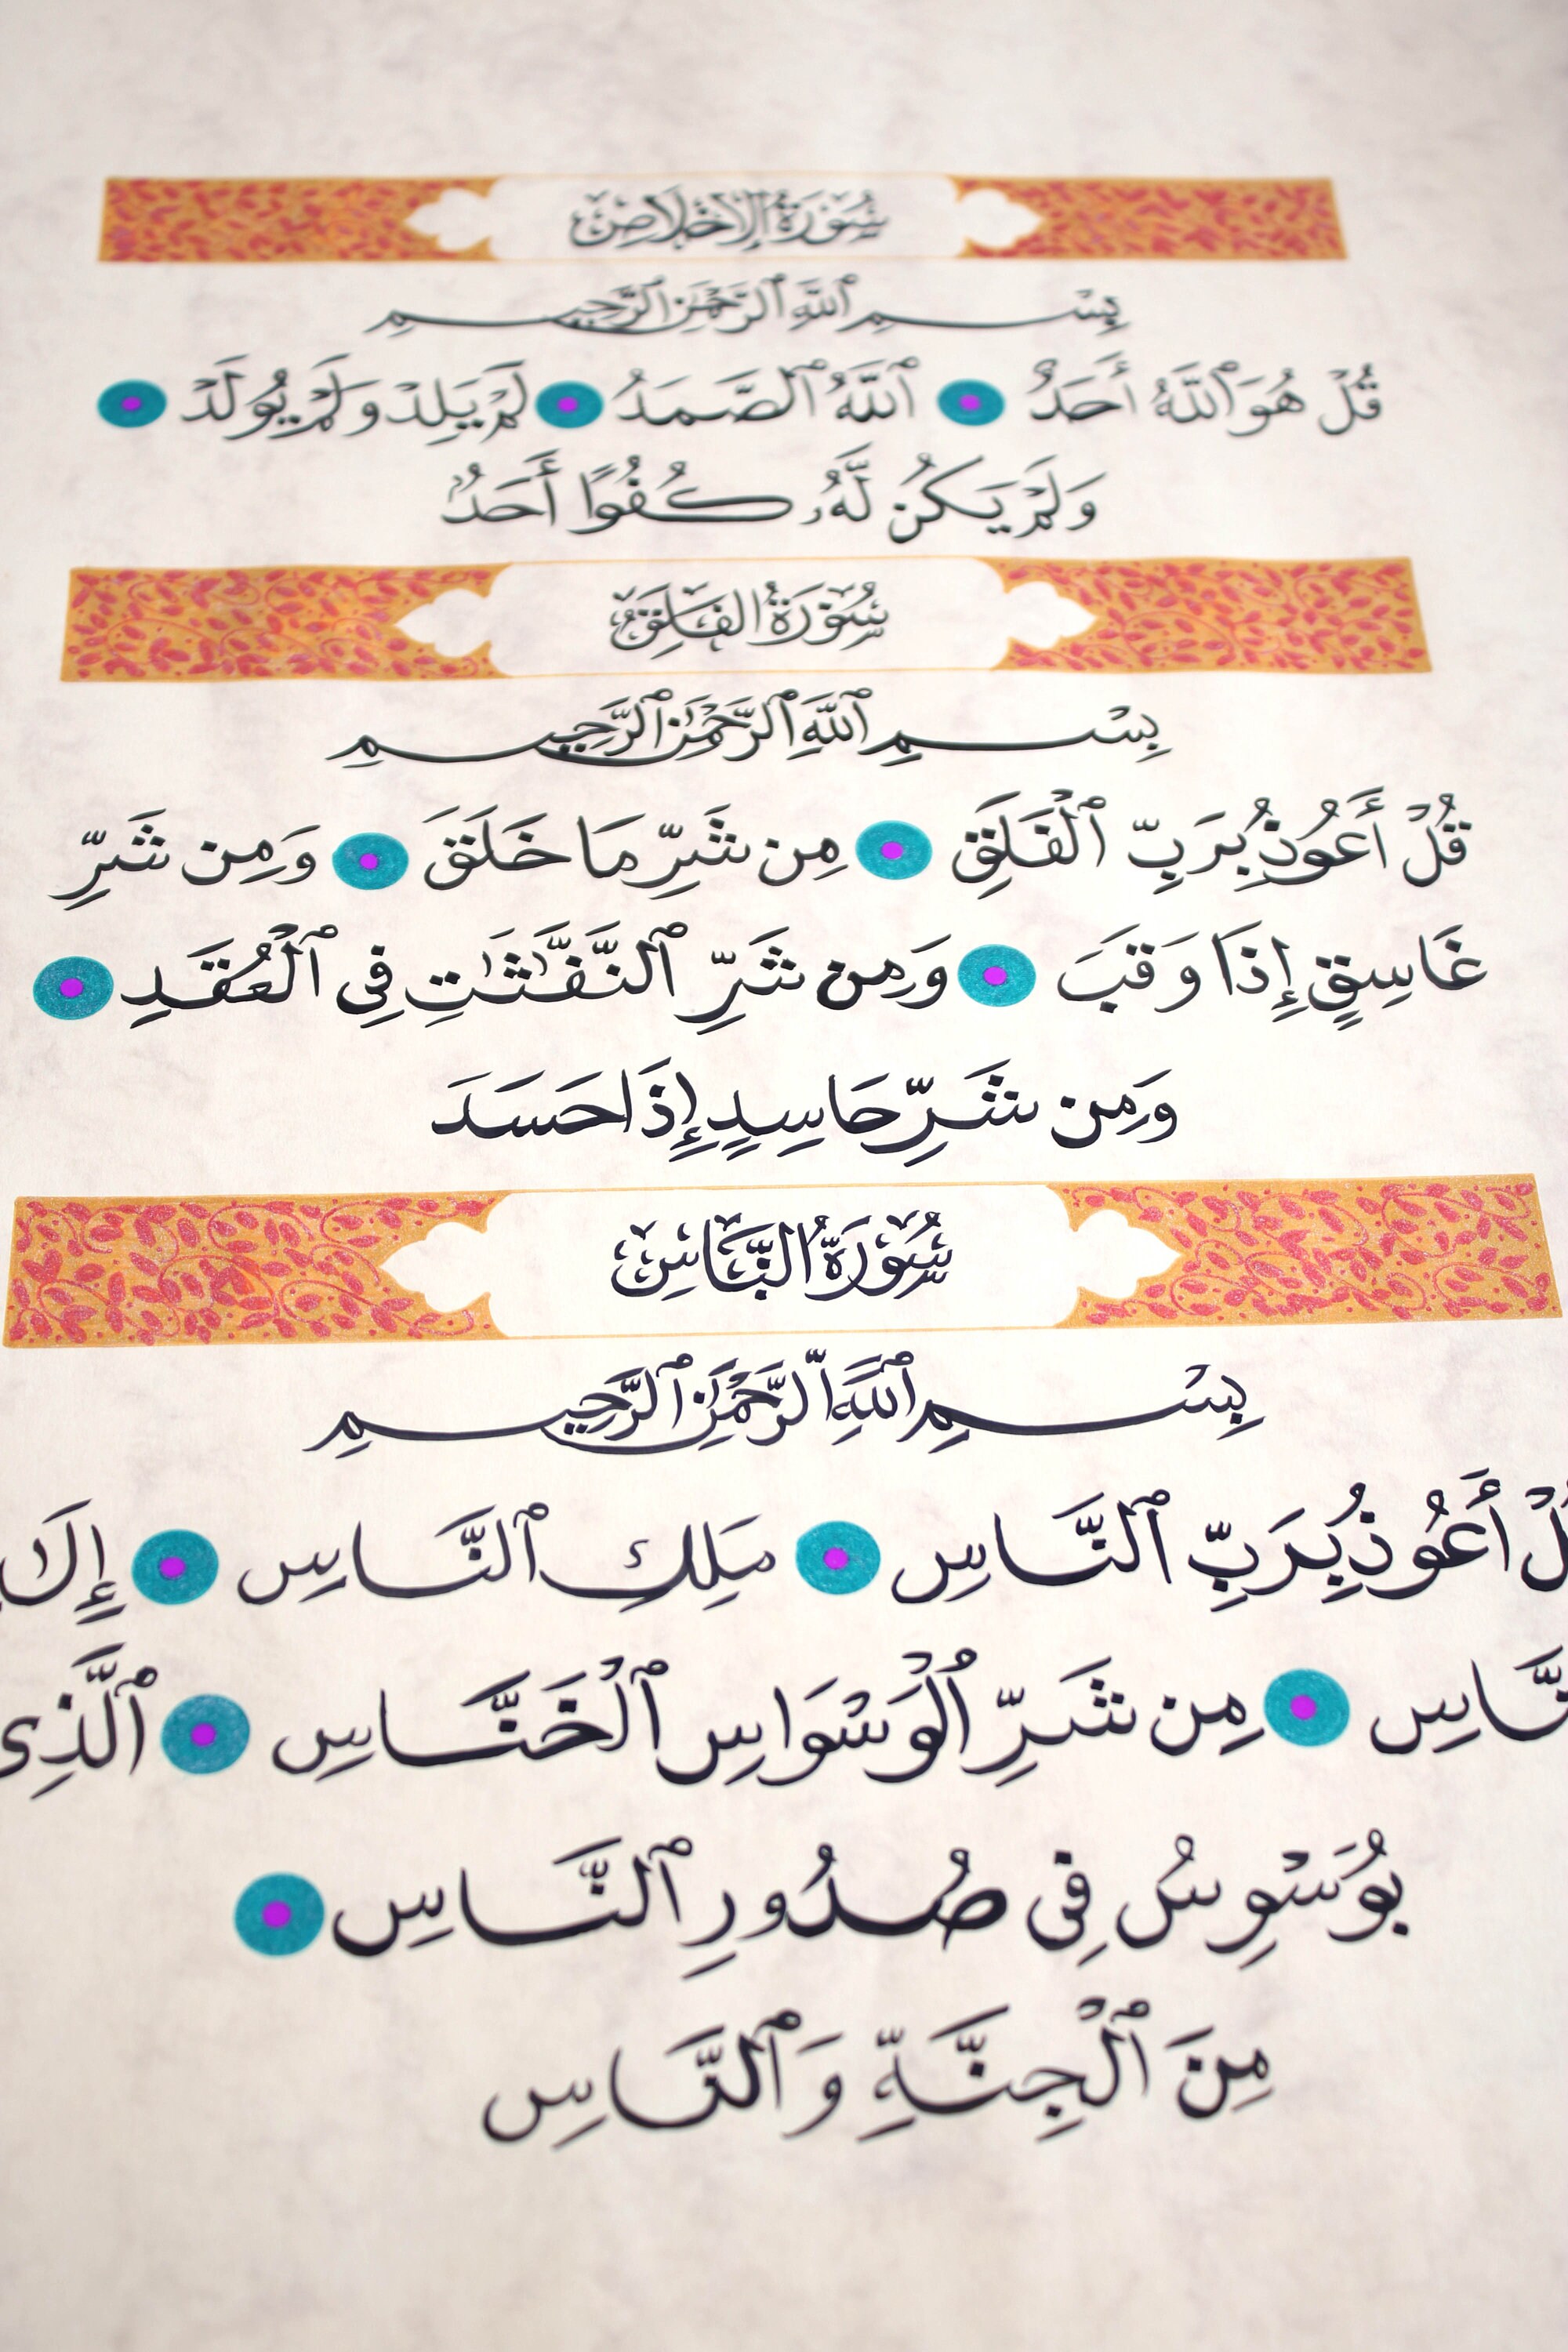 سُورَةُ الإِخْلَاصِ
بِسْمِ ٱللَّهِ ٱلرَّحْمَٰنِ ٱلرَّحِيمِ
قُلْ هُوَ ٱللَّهُ أَحَدٌ ٱللَّهُ ٱلصَّمَدُ لَمْ يَلِدْ وَلَمْ يُولَدْ
وَلَمْ يَكُن لَّهُۥ كُفُوًا أَحَدٌۢ
سُورَةُ الفَلَقِ
بِسْمِ ٱللَّهِ ٱلرَّحْمَٰنِ ٱلرَّحِيمِ
قُلْ أَعُوذُ بِرَبِّ ٱلْفَلَقِ مِن شَرِّ مَا خَلَقَ وَمِن شَرِّ
غَاسِقٍ إِذَا وَقَبَ وَمِن شَرِّ ٱلنَّفَّٰثَٰتِ فِى ٱلْعُقَدِ
وَمِن شَرِّ حَاسِدٍ إِذَا حَسَدَ
سُورَةُ النَّاسِ
بِسْمِ ٱللَّهِ ٱلرَّحْمَٰنِ ٱلرَّحِيمِ
أَعُوذُ بِرَبِّ ٱلنَّاسِ مَلِكِ ٱلنَّاسِ
مِن شَرِّ ٱلْوَسْوَاسِ ٱلْخَنَّاسِ ٱلَّذِى
يُوَسْوِسُ فِى صُدُورِ ٱلنَّاسِ
مِنَ ٱلْجِنَّةِ وَٱلنَّاسِ